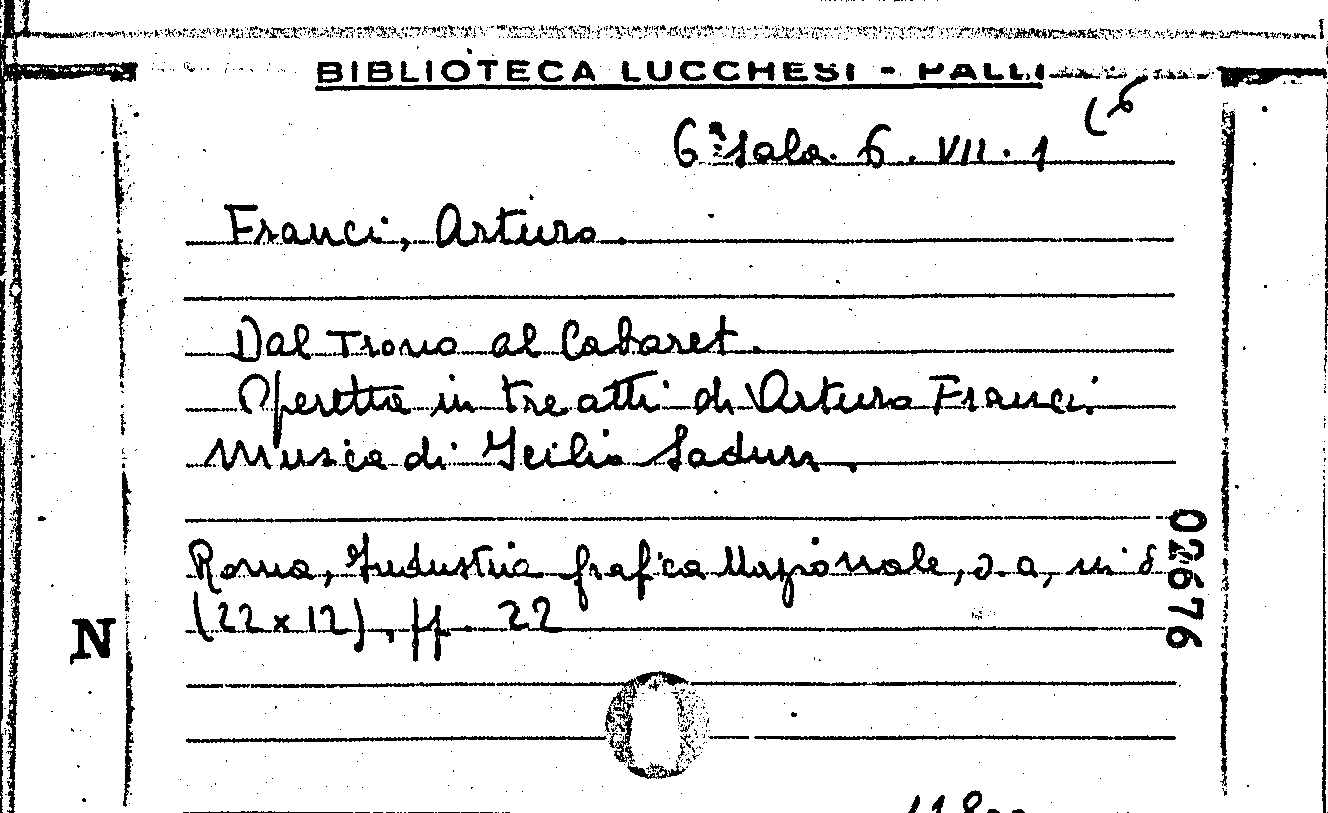 BIBLIOTECA LUCCHESI - PALLI
(6
6ª Sala. 6. VII. 1
Franci, Arturo.
Dal Trono al Cabaret.
Operetta in tre atti di Arturo Franci.
Musica di Icilio Sadun.
Roma, Industria grafica Nazionale, s. a, in 8
(22 x 12), pp. 22
02676
N